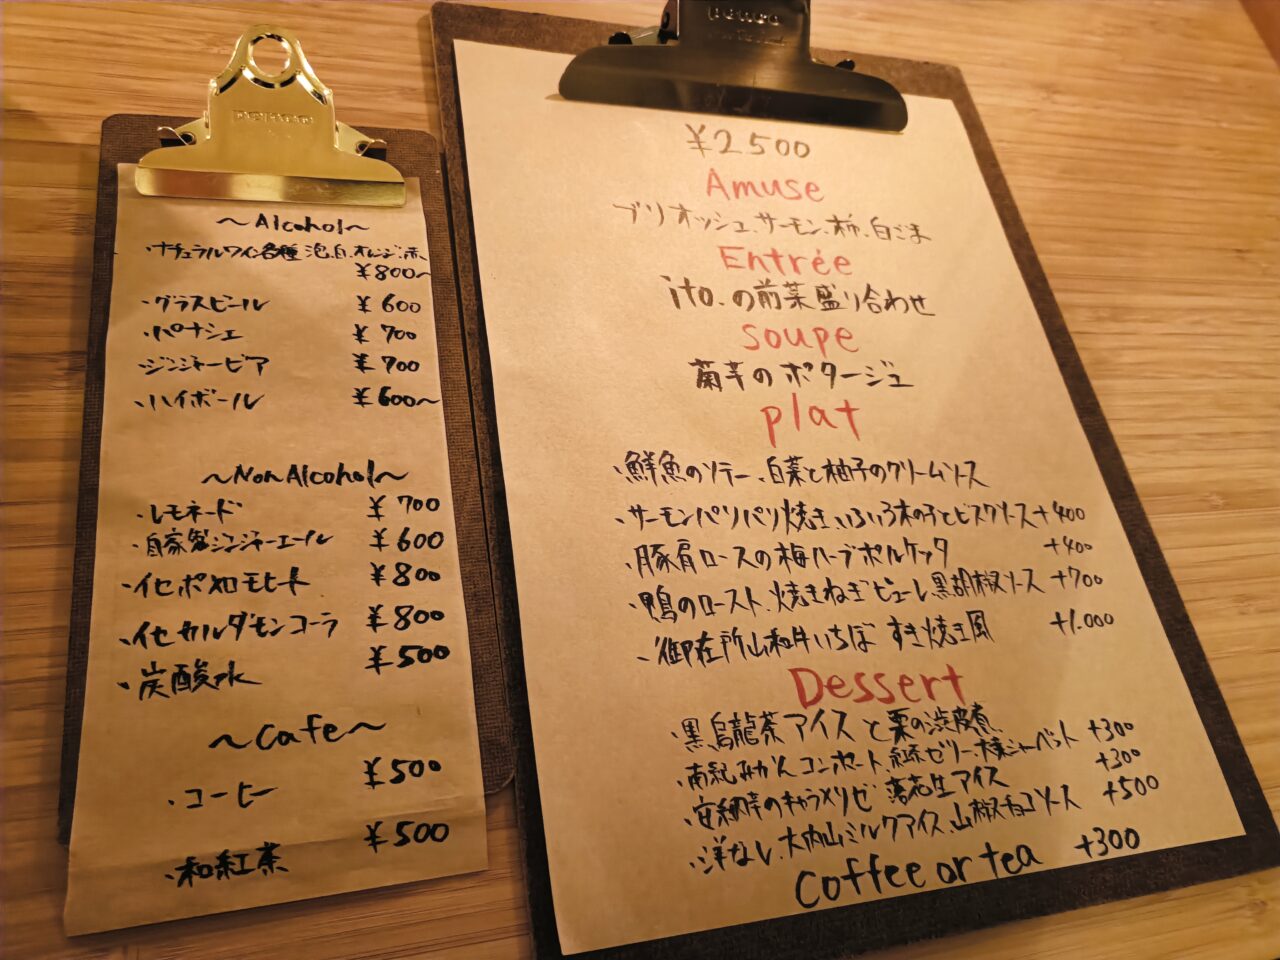 penco
~Alcohol~
・ナチュラルワイン各種 泡、白、オレンジ、赤、
¥800~
・グラスビール ¥600
・パナシェ ¥700
・ジンジャービア ¥700
・ハイボール ¥600~
~NonAlcohol~
・レモネード ¥700
・自家製ジンジャーエール ¥600
・イセポメロモヒート ¥800
・イセカルダモンコーラ ¥800
・炭酸水 ¥500
~Cafe~
・コーヒー ¥500
・和紅茶 ¥500
penco
¥2500
Amuse
ブリオッシュ、サーモン、柿、白ごま
Entrée
ito.の前菜盛り合わせ
Soupe
菊芋のポタージュ
plat
・鮮魚のソテー、白菜と柚子のクリームソース
・サーモンパリパリ焼き、いろいろ木の子とビスクソース +400
・豚肩ロースの梅ハーブポルケッタ +400
・鴨のロースト、焼きねぎピューレ、黒胡椒ソース +700
・御在所山和牛いちぼ すき焼き風 +1.000
Dessert
・黒烏龍茶アイスと栗の渋皮煮
・南紀みかんコンポート、紅茶ゼリー、シャーベット +300
・安納芋のキャラメリゼ 落花生アイス +300
・洋なし、大内山ミルクアイス、山椒チョコソース +500
Coffee or tea +300